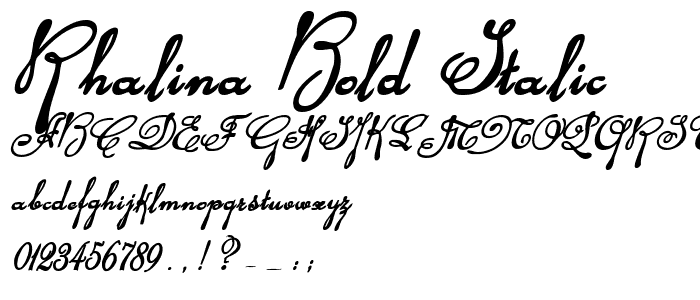 Rhalina Bold Italic
ABCDEFGHIJKLMNOPQRST
abcdefghijklmnopqrstuvwxyz
0123456789 . , ! ? - _ : ;